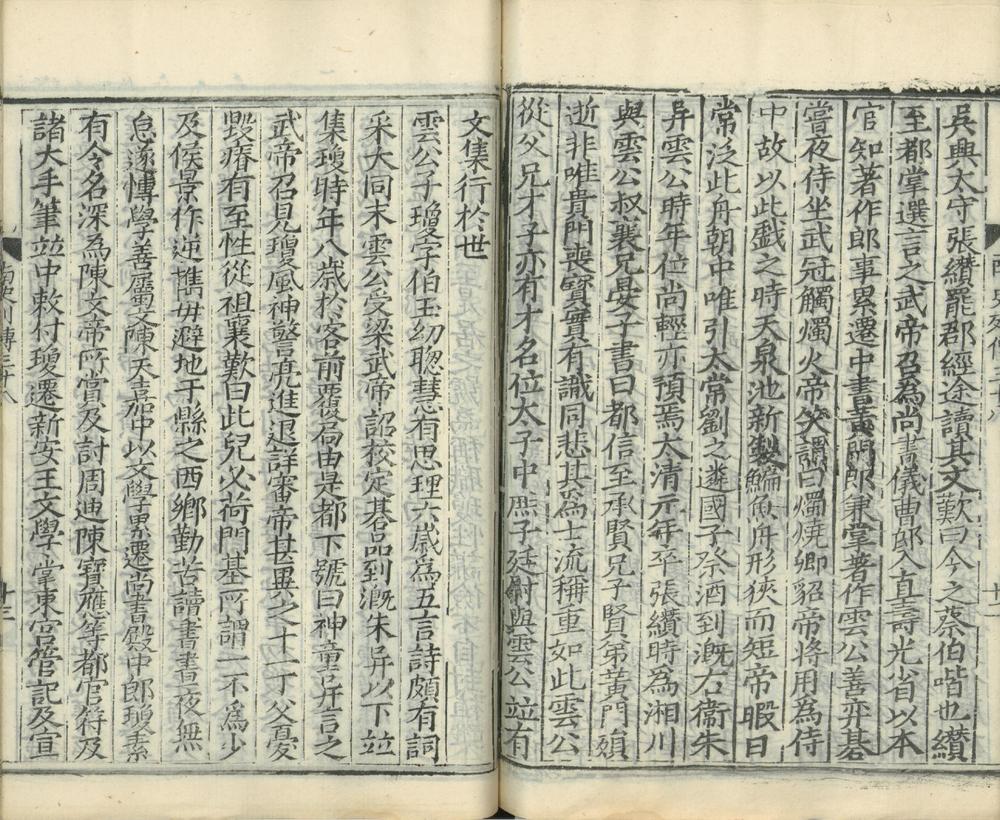 吳興太守張纘罷郡經途讀其文歎曰今之蔡伯喈也纘
至都掌選言之武帝召為尚書儀曹郎入直壽光省以本
官知著作郎事累遷中書黃門郎兼掌著作雲公善弈碁
嘗夜侍坐武冠觸燭火帝笑謂曰燭燒卿貂帝將用為侍
中故以此戲之時天泉池新製鯿魚舟形狹而短帝暇日
常泛此舟朝中唯引太常劉之遴國子祭酒到溉右衞朱
异雲公時年位尚輕亦預焉太清元年卒張纘時為湘川
與雲公叔襄兄晏子書曰都信至承賢兄子賢弟黃門殞
逝非唯貴門喪寶實有識同悲其為士流稱重如此雲公
從父兄才子亦有才名位太子中庶子廷尉與雲公竝有
文集行於世
雲公子瓊字伯玉幼聰慧有思理六歲為五言詩頗有詞
采大同末雲公受梁武帝詔校定碁品到溉朱异以下竝
集瓊時年八歲於客前覆局由是都下號曰神童异言之
武帝召見瓊風神警亮進退詳審帝甚異之十一丁父憂
毀瘠有至性從祖襄歎曰此兒必荷門基所謂一不為少
及侯景作逆攜母避地于縣之西鄉勤苦讀書晝夜無
怠遂博學善屬文陳天嘉中以文學累遷尚書殿中郎瓊素
有令名深為陳文帝所賞及討周迪陳寶應等都官符及
諸大手筆竝中敕付瓊遷新安王文學掌東宮管記及宣